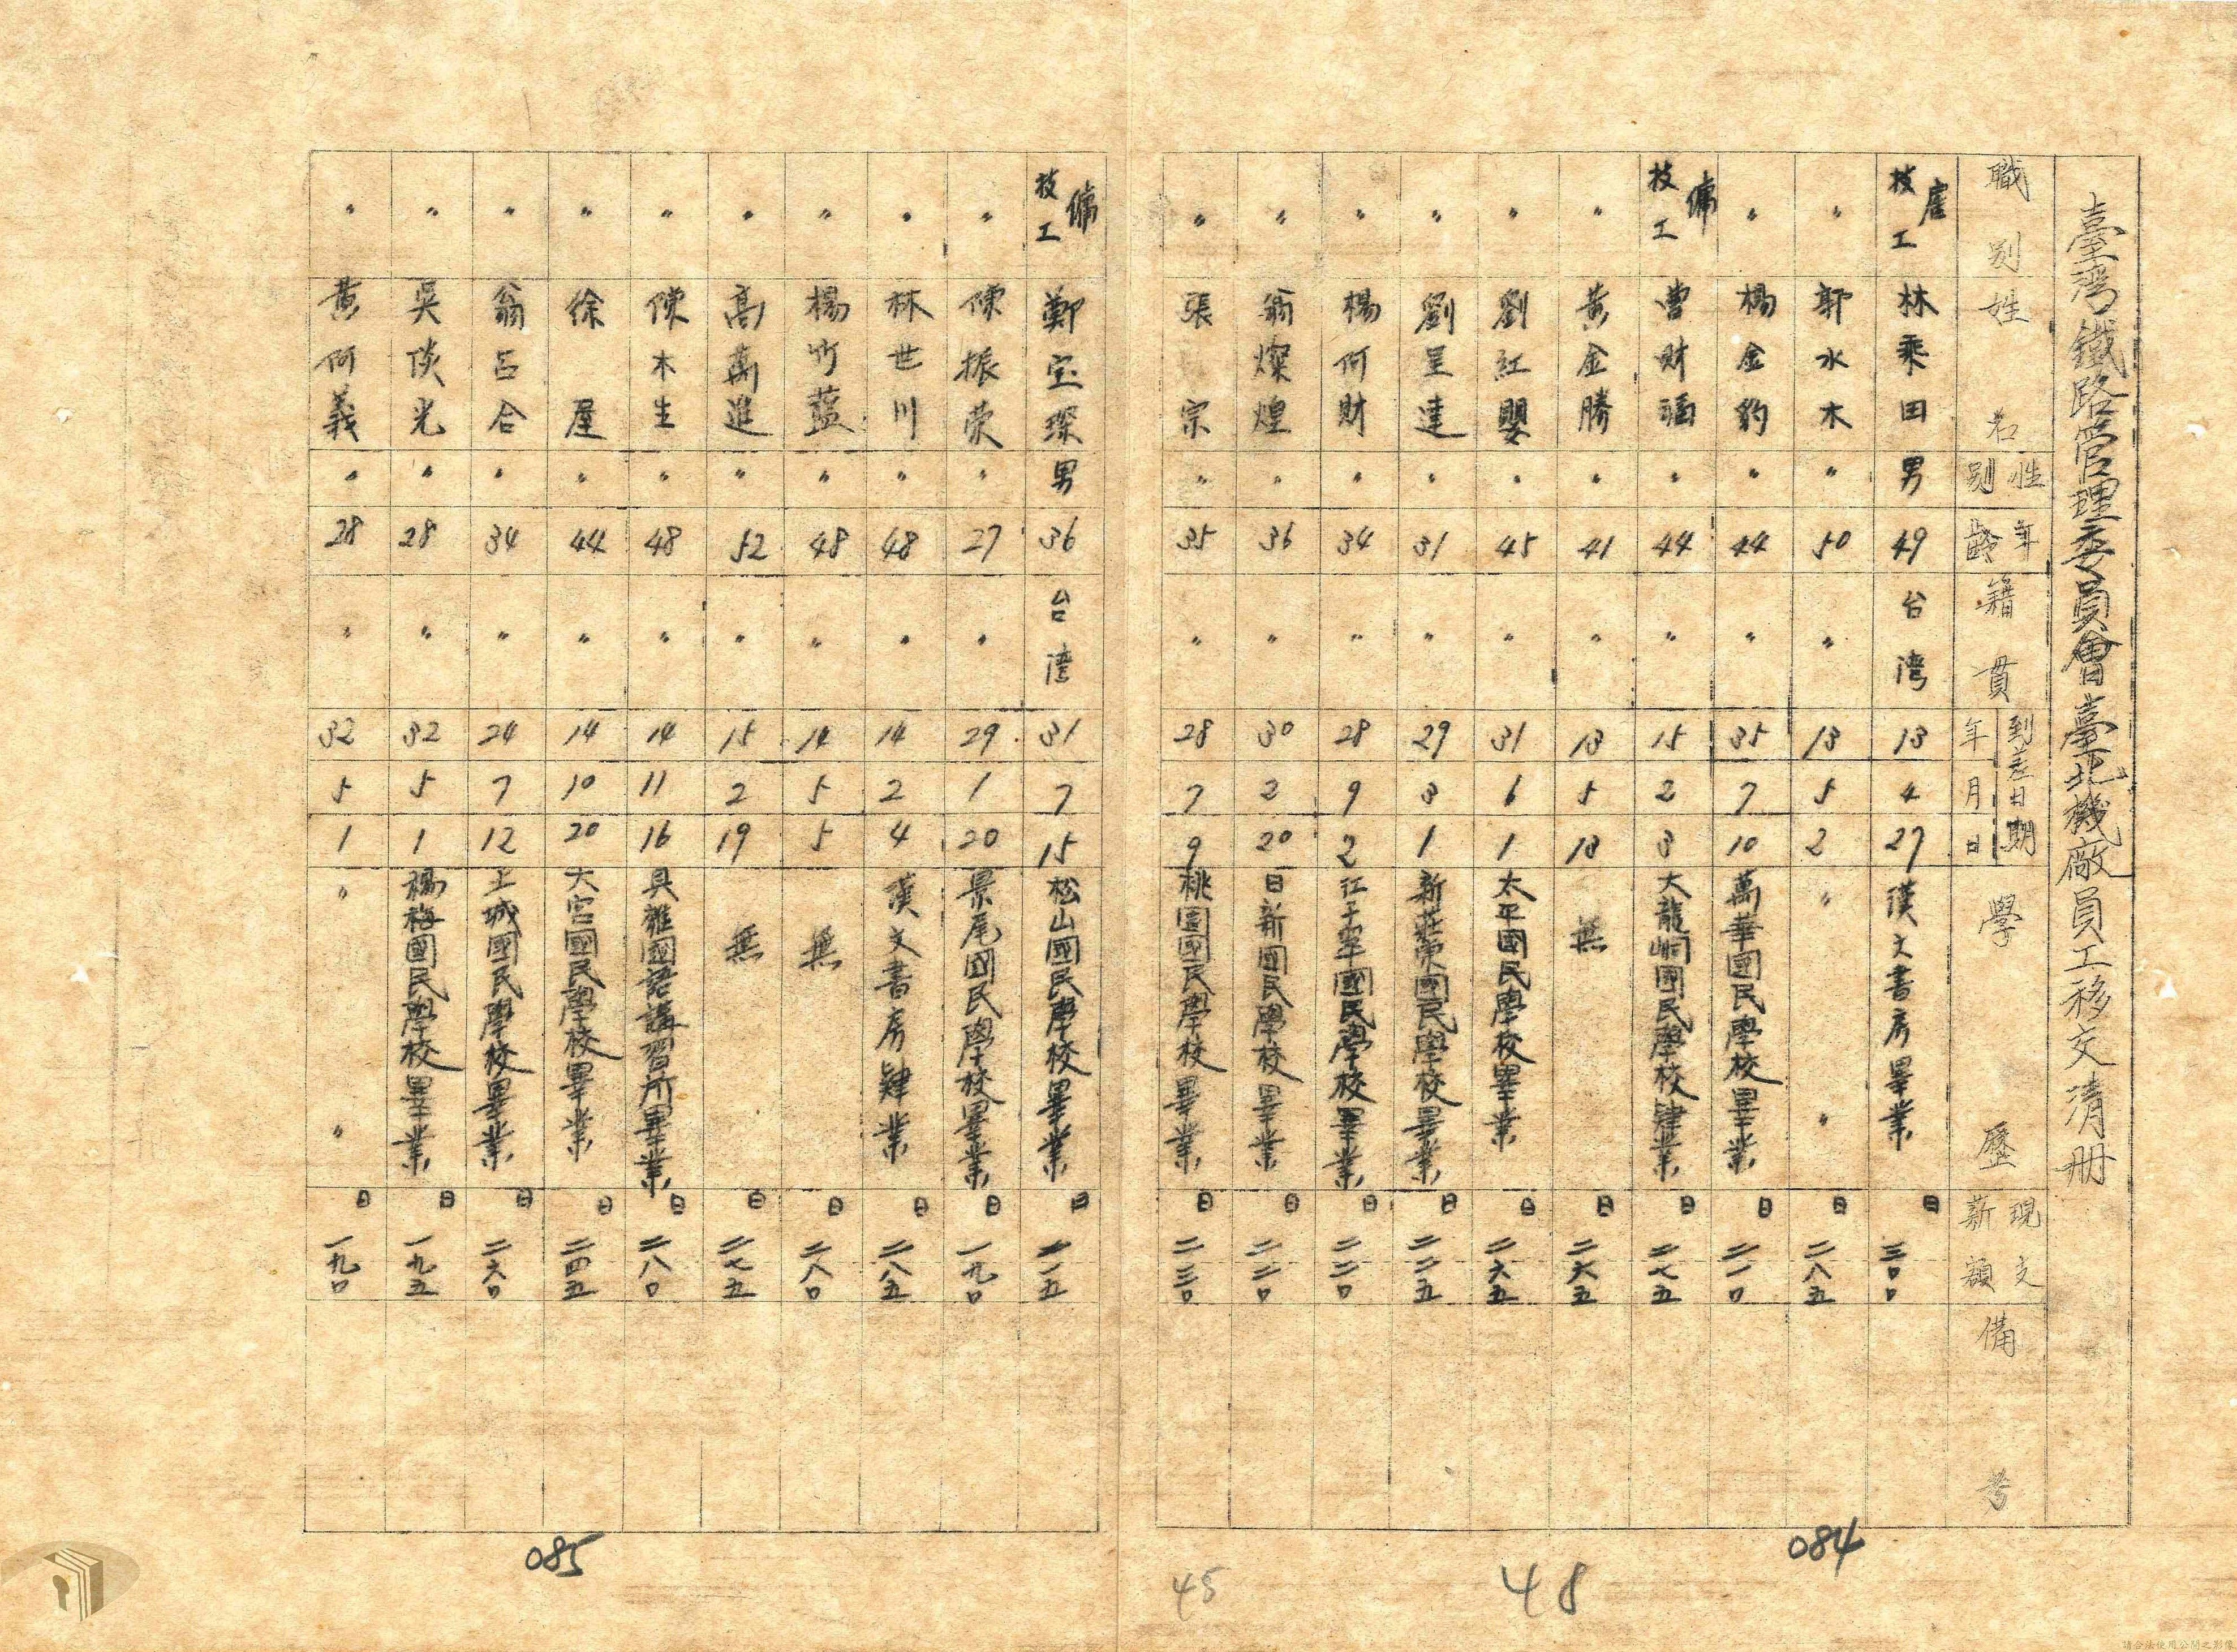 臺灣鐵路管理委員會臺北機廠員工移交清册
職別 姓名 性別 年齡 籍貫 到差日期 年 月 日 學歷 現支薪額 備考
雇技工 林乘田 男 49 台湾 13 4 27 漢文書房畢業 日 三〇〇
〃 郭水木 〃 50 〃 13 5 2 〃 〃 日 二八五
〃 楊金豹 〃 44 〃 35 7 10 萬華國民學校畢業 日 二一〇
傭技工 曹財福 〃 44 〃 15 2 3 大龍峒國民學校肄業 日 二七五
〃 黃金勝 〃 41 〃 13 5 13 無 日 二六五
〃 劉紅嬰 〃 45 〃 31 6 1 太平國民學校畢業 日 二六五
〃 劉呈達 〃 31 〃 29 3 1 新莊東國民學校畢業 日 二二五
〃 楊何財 〃 34 〃 28 9 2 江子翠國民學校畢業 日 二二〇
〃 翁燦煌 〃 36 〃 30 2 20 日新國民學校畢業 日 二二〇
〃 張宗 〃 35 〃 28 7 9 桃園國民學校畢業 日 二三〇
084
傭技工 鄭宝琛 男 36 台湾 31 7 15 松山國民學校畢業 日 二一五
〃 陳振荣 〃 27 〃 29 1 20 景尾國民學校畢業 日 一九〇
〃 林世川 〃 48 〃 14 2 4 漢文書房肄業 日 二八五
〃 楊竹藍 〃 48 〃 14 5 5 無 日 二八〇
〃 高萬進 〃 52 〃 15 2 19 無 日 二七五
〃 陳木生 〃 48 〃 14 11 16 具雅國語講習所畢業 日 二八〇
〃 徐屋 〃 44 〃 14 10 20 大宮國民學校畢業 日 二四五
〃 翁呂合 〃 34 〃 24 7 12 土城國民學校畢業 日 二六〇
〃 吳啖光 〃 28 〃 32 5 1 楊梅國民學校畢業 日 一九五
〃 黃何義 〃 28 〃 32 5 1 〃 〃 日 一九〇
085
45
48
請合法使用公開之影像